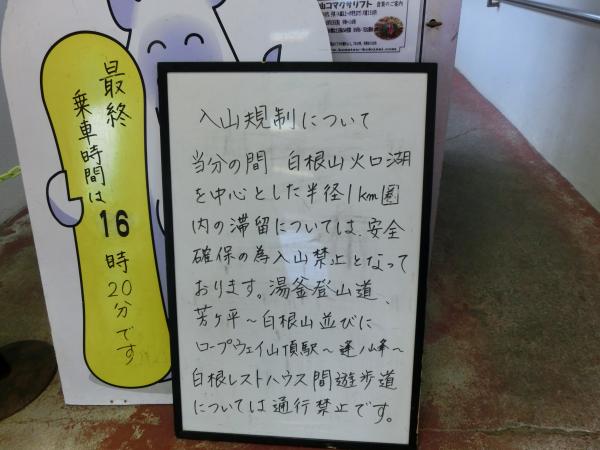 最終
乗車時間は
16
時
20分です
入山規制について
当分の間 白根山火口湖
を中心とした半径1km圏
内の滞留については、安全
確保の為入山禁止となって
おります。湯釜登山道、
芳ヶ平~白根山並びに
ロープウェイ山頂駅~逢ノ峰~
白根レストハウス間遊歩道
については通行禁止です。
山コマクサリフト